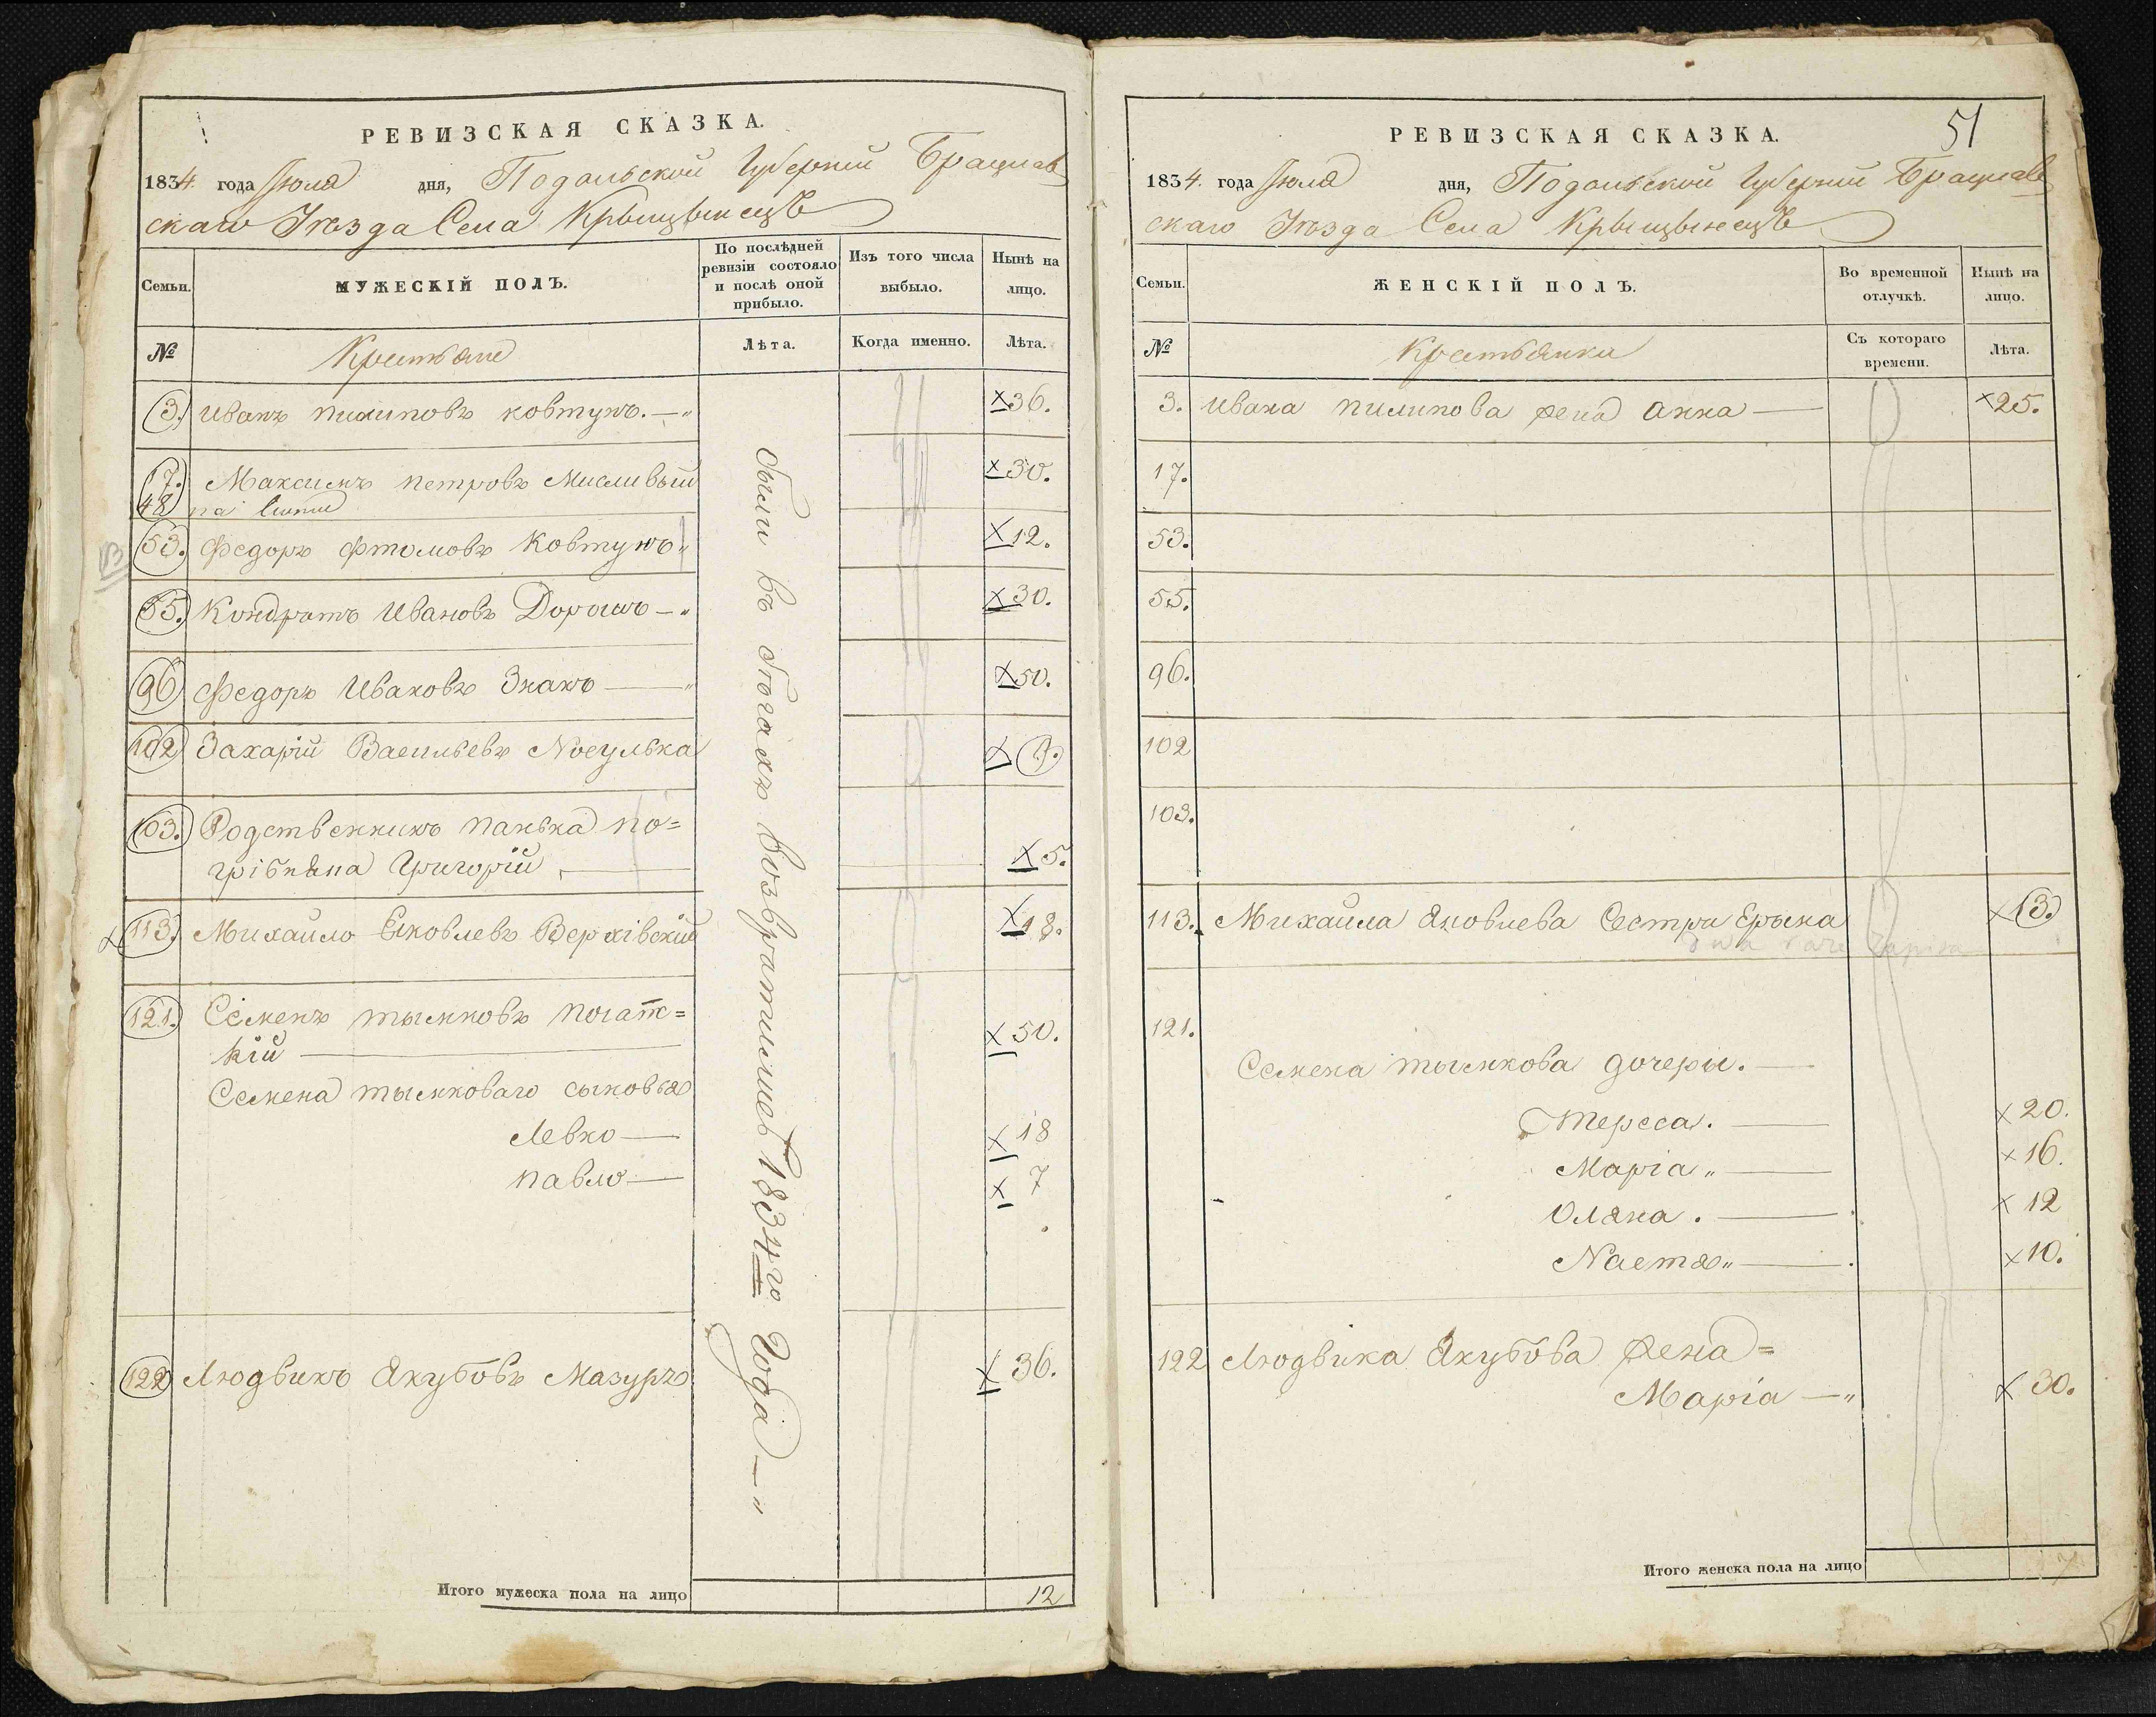 РЕВИЗСКАЯ СКАЗКА.
1834. года Июля дня, Подольской Губерніи Брацлав
скаго Уѣзда Села Крыщынецъ
Семьи.
МУЖЕСКІЙ ПОЛЪ.
По послѣдней ревизіи состояло и послѣ оной прибыло.
Изъ того числа выбыло.
Нынѣ на лицо.
№
Крестьяне
Лѣта.
Когда именно.
Лѣта.
3. Иванъ Пилиповъ Ковтунъ. — 36.
17. Максимъ Петровъ Мисливый 30.
48
53. Федоръ Ковтунъ 12.
55. Кондратъ Ивановъ Дорошъ — 30.
96 Федоръ Ивановъ Знакъ — 50.
102 Захарій Васильевъ Носулька
103. Родственникъ Панька По=
грібняка Григорій — 5.
113. Михайло Яковлевъ Верхівскій 18.
121. Семенъ Тымковъ Логатс=
кій — 50.
Семена Тымковаго сыновья
Левко — 18
Павло — 7
122 Людвикъ Якубовъ Мазуръ 36.
были въ бѣгахъ возвратились 1834го Года —
Итого мужеска пола на лицо 12
51
РЕВИЗСКАЯ СКАЗКА.
1834. года Июля дня, Подольской Губерніи Брацлав
скаго Уѣзда Села Крыщынецъ
Семьи.
ЖЕНСКІЙ ПОЛЪ.
Во временной отлучкѣ.
Нынѣ на лицо.
№
Крестьянки
Съ котораго времени.
Лѣта.
3. Ивана Пилипова жена Анна — 25.
17.
53.
55.
96.
102
103.
113. Михайла Яковлева Сестра Ерына 3.
121.
Семена Тымкова дочери. —
Тереса. — 20.
Маріа — 16.
Оляна. — 12
Настя — 10.
122 Людвика Якубова жена=
Маріа — 30.
Итого женска пола на лицо 7